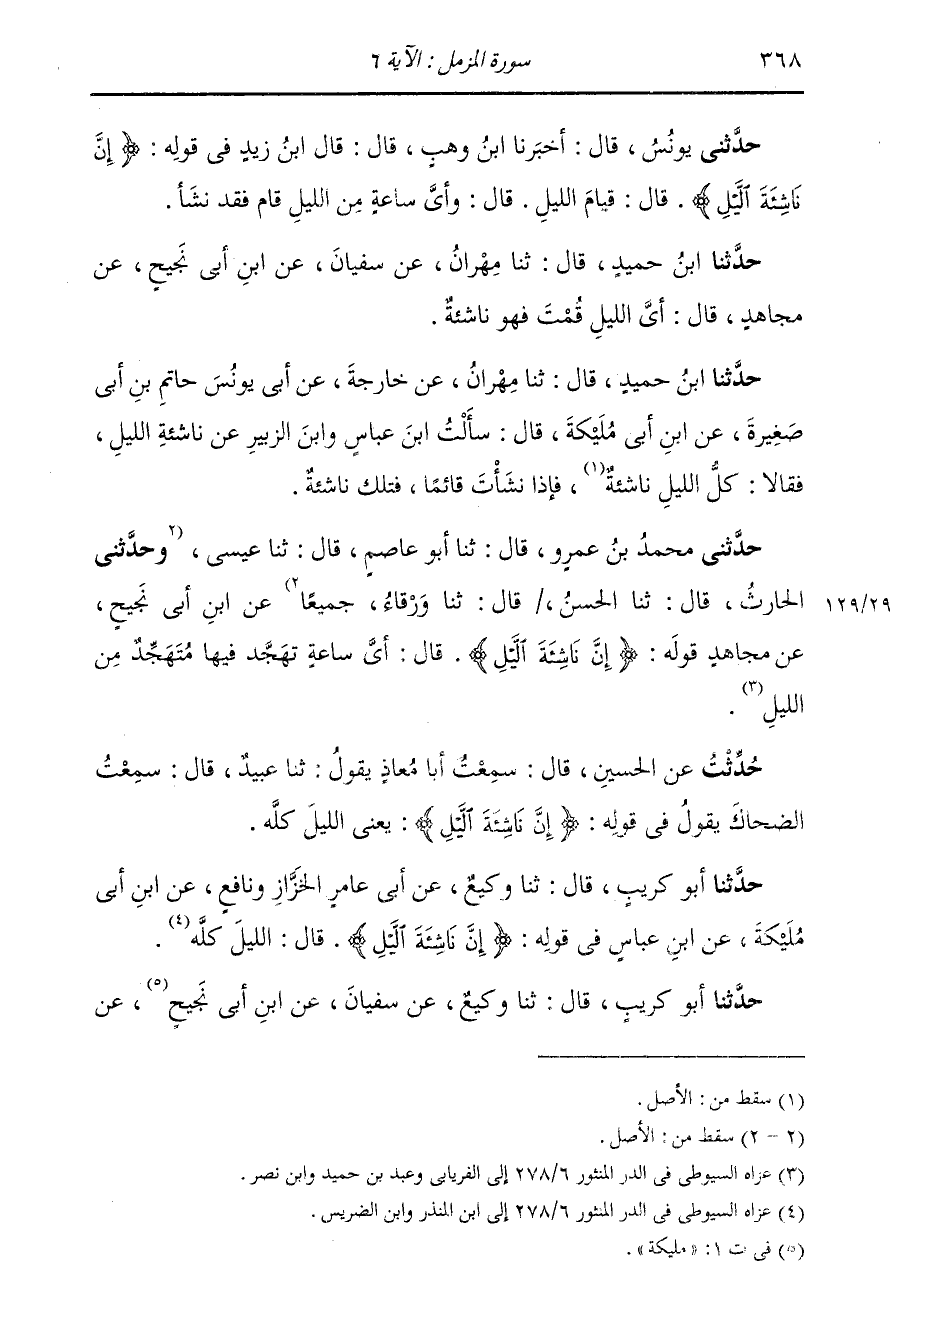 ٣٦٨ سورة المزمل : الآية ٦
حدَّثنى يونُسُ ، قال : أخبَرنا ابنُ وهبٍ ، قال : قال ابنُ زيدٍ فى قولِه : ﴿ إِنَّ
نَاشِئَةَ ٱلَّيْلِ ﴾ . قال : قيامَ الليلِ . قال : وأىَّ ساعةٍ مِن الليلِ قام فقد نشَأ .
حدَّثنا ابنُ حميدٍ ، قال : ثنا مِهْرانُ ، عن سفيانَ ، عن ابنِ أبى نَجيحٍ ، عن
مجاهدٍ ، قال : أىَّ الليلِ قُمْتَ فهو ناشئةٌ .
حدَّثنا ابنُ حميدٍ ، قال : ثنا مِهْرانُ ، عن خارجةَ ، عن أبى يونُسَ حاتمِ بنِ أبى
صَغِيرةَ ، عن ابنِ أبى مُلَيْكةَ ، قال : سأَلْتُ ابنَ عباسٍ وابنَ الزبيرِ عن ناشئةِ الليلِ ،
فقالا : كلُّ الليلِ ناشئةٌ(١) ، فإذا نشَأْتَ قائمًا ، فتلك ناشئةٌ .
حدَّثنى محمدُ بنُ عمرٍو ، قال : ثنا أبو عاصمٍ ، قال : ثنا عيسى ، (٢وحدَّثنى
١٢٩/٢٩ الحارثُ ، قال : ثنا الحسنُ ،/ قال : ثنا وَرْقاءُ ، جميعًا٢) عن ابنِ أبى نَجيحٍ ،
عن مجاهدٍ قولَه : ﴿ إِنَّ نَاشِئَةَ ٱلَّيْلِ ﴾ . قال : أىَّ ساعةٍ تهَجَّد فيها مُتَهَجِّدٌ مِن
الليلِ(٣) .
حُدِّثْتُ عن الحسينِ ، قال : سمِعْتُ أبا مُعاذٍ يقولُ : ثنا عبيدٌ ، قال : سمِعْتُ
الضحاكَ يقولُ فى قولِه : ﴿ إِنَّ نَاشِئَةَ ٱلَّيْلِ ﴾ : يعنى الليلَ كلَّه .
حدَّثنا أبو كريبٍ ، قال : ثنا وكيعٌ ، عن أبى عامرٍ الخَزَّازِ ونافعٍ ، عن ابنِ أبى
مُلَيْكةَ ، عن ابنِ عباسٍ فى قولِه : ﴿ إِنَّ نَاشِئَةَ ٱلَّيْلِ ﴾ . قال : الليلَ كلَّه(٤) .
حدَّثنا أبو كريبٍ ، قال : ثنا وكيعٌ ، عن سفيانَ ، عن ابنِ أبى نَجيحٍ(٥) ، عن
(١) سقط من : الأصل .
(٢ - ٢) سقط من : الأصل .
(٣) عزاه السيوطى فى الدر المنثور ٢٧٨/٦ إلى الفريابى وعبد بن حميد وابن نصر .
(٤) عزاه السيوطى فى الدر المنثور ٢٧٨/٦ إلى ابن المنذر وابن الضريس .
(٥) فى ت ١: « مليكة » .